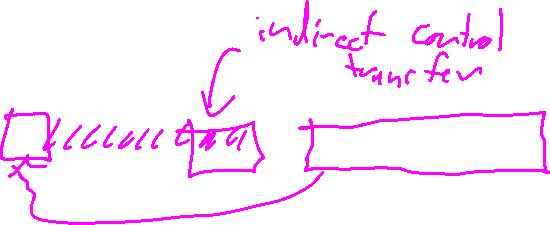 indirect control
transfer